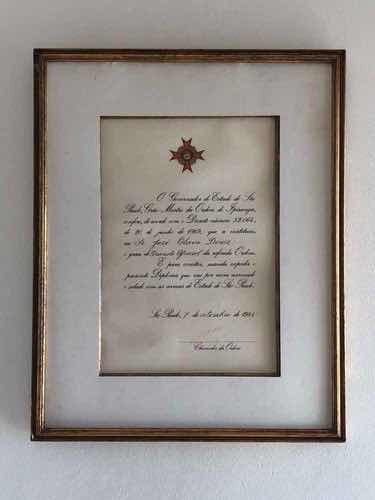 O Governador do Estado de São
Paulo, Grão-Mestre da Ordem do Ipiranga,
confere, de acordo com o Decreto número 52.064,
de 20 de junho de 1969, que a instituiu,
ao Sr. José
o grau de Grande Oficial da referida Ordem.
E para constar, mandou expedir o
presente Diploma que vai por mim assinado
e selado com as armas do Estado de São Paulo.
São Paulo, 7 de setembro de
Chanceler da Ordem